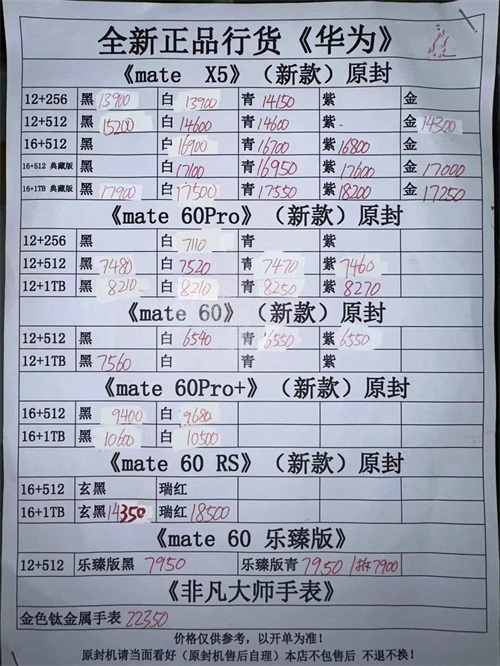 全新正品行货《华为》
《mate X5》（新款）原封
12+256 黑 13900 白 13900 青 14150 紫 金
12+512 黑 15200 白 14600 青 14600 紫 金 14300
16+512 黑 白 16900 青 16700 紫 16800 金
16+512 典藏版 黑 白 17100 青 16950 紫 17600 金 17000
16+1TB 典藏版 黑 17900 白 17500 青 17550 紫 18200 金 17250
《mate 60Pro》（新款）原封
12+256 黑 白 7110 青 紫
12+512 黑 7480 白 7520 青 7470 紫 7460
12+1TB 黑 8210 白 8210 青 8250 紫 8270
《mate 60》（新款）原封
12+512 黑 白 6540 青 6550 紫 6550
12+1TB 黑 7560 白 青 紫
《mate 60Pro+》（新款）原封
16+512 黑 9400 白 9680
16+1TB 黑 10600 白 10500
《mate 60 RS》（新款）原封
16+512 玄黑 瑞红
16+1TB 玄黑 14350 瑞红 18500
《mate 60 乐臻版》
12+512 乐臻版黑 7950 乐臻版青 7950 7900
《非凡大师手表》
金色钛金属手表 22350
价格仅供参考，以开单为准！
原封机请当面看好（原封机售后自理）本店不包售后 不退不换！